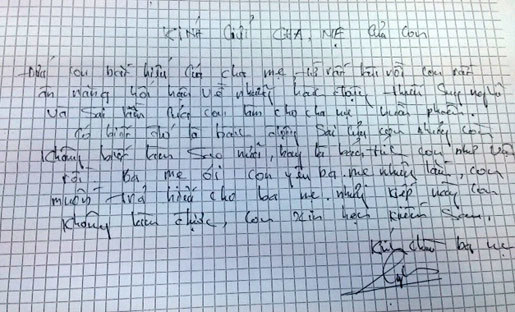 KÍNH GỬI CHA, MẸ CỦA CON
Đứa con bất hiếu của cha mẹ rất con rất
ăn năng hối hận về những hành động thiếu suy nghĩ
và sai lầm con làm cho cha mẹ phiền.
Có biết đó là hành động sai lầm con nhưng con
không biết làm sao nữa, hay là con như vậy
rồi ba mẹ ơi con yêu ba mẹ nhiều lắm, con
muốn trả hiếu cho ba mẹ nhưng kiếp này con
không làm được, con xin hẹn kiếp sau.
Kính chào ba mẹ